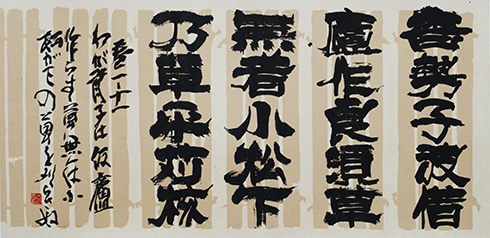 吾勢子波借
廬作良須草
無者小松下
乃草乎苅核
巻一・十一
わが背子は仮廬
作らす草無くは小
松が下の草を刈らさね